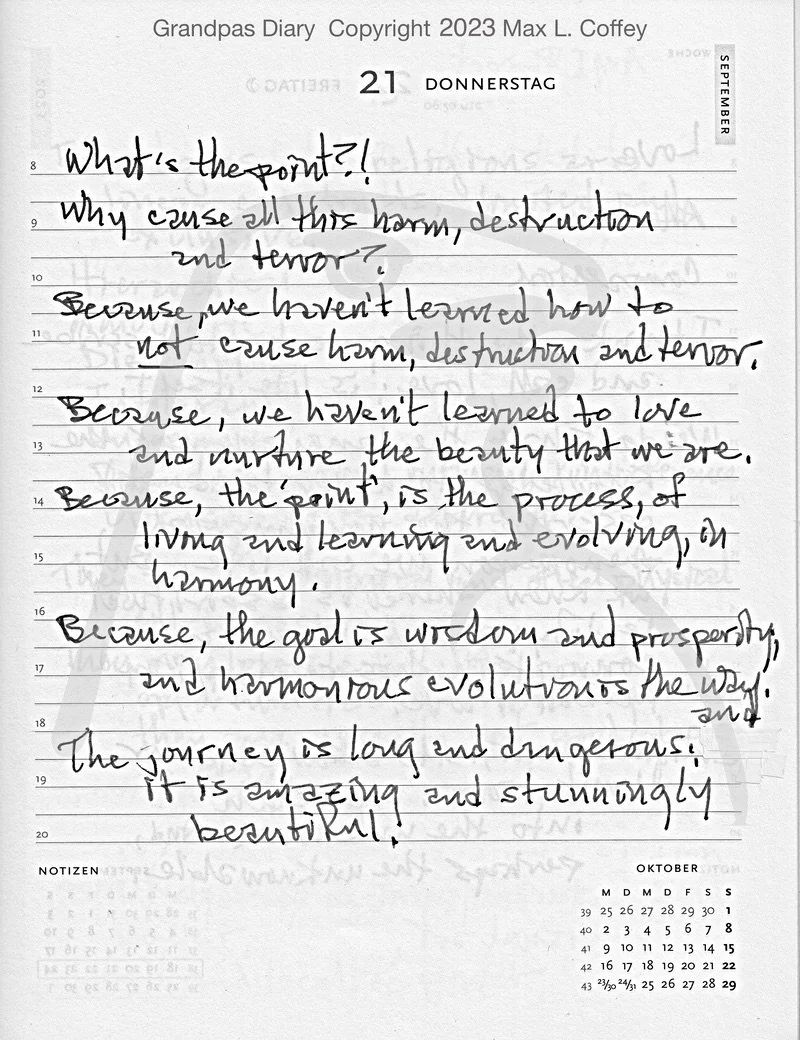 Grandpas Diary Copyright 2023 Max L. Coffey
WOCHE
21 DONNERSTAG
SEPTEMBER
FREITAG
8 What's the point?!
9 Why cause all this harm, destruction
and terror?
10
Because, we haven't learned how to
11 not cause harm, destruction and terror.
12
Because, we haven't learned to love
13 and nurture the beauty that we are.
14 Because, the 'point', is the process, of
living and learning and evolving, in
15 harmony.
16
Because, the goal is wisdom and prosperity,
17 and harmonious evolution is the way.
and
18 The journey is long and dangerous.
19 it is amazing and stunningly
20 beautiful!
NOTIZEN
OKTOBER
M D M D F S S
39 25 26 27 28 29 30 1
40 2 3 4 5 6 7 8
41 9 10 11 12 13 14 15
42 16 17 18 19 20 21 22
43 23/30 24/31 25 26 27 28 29